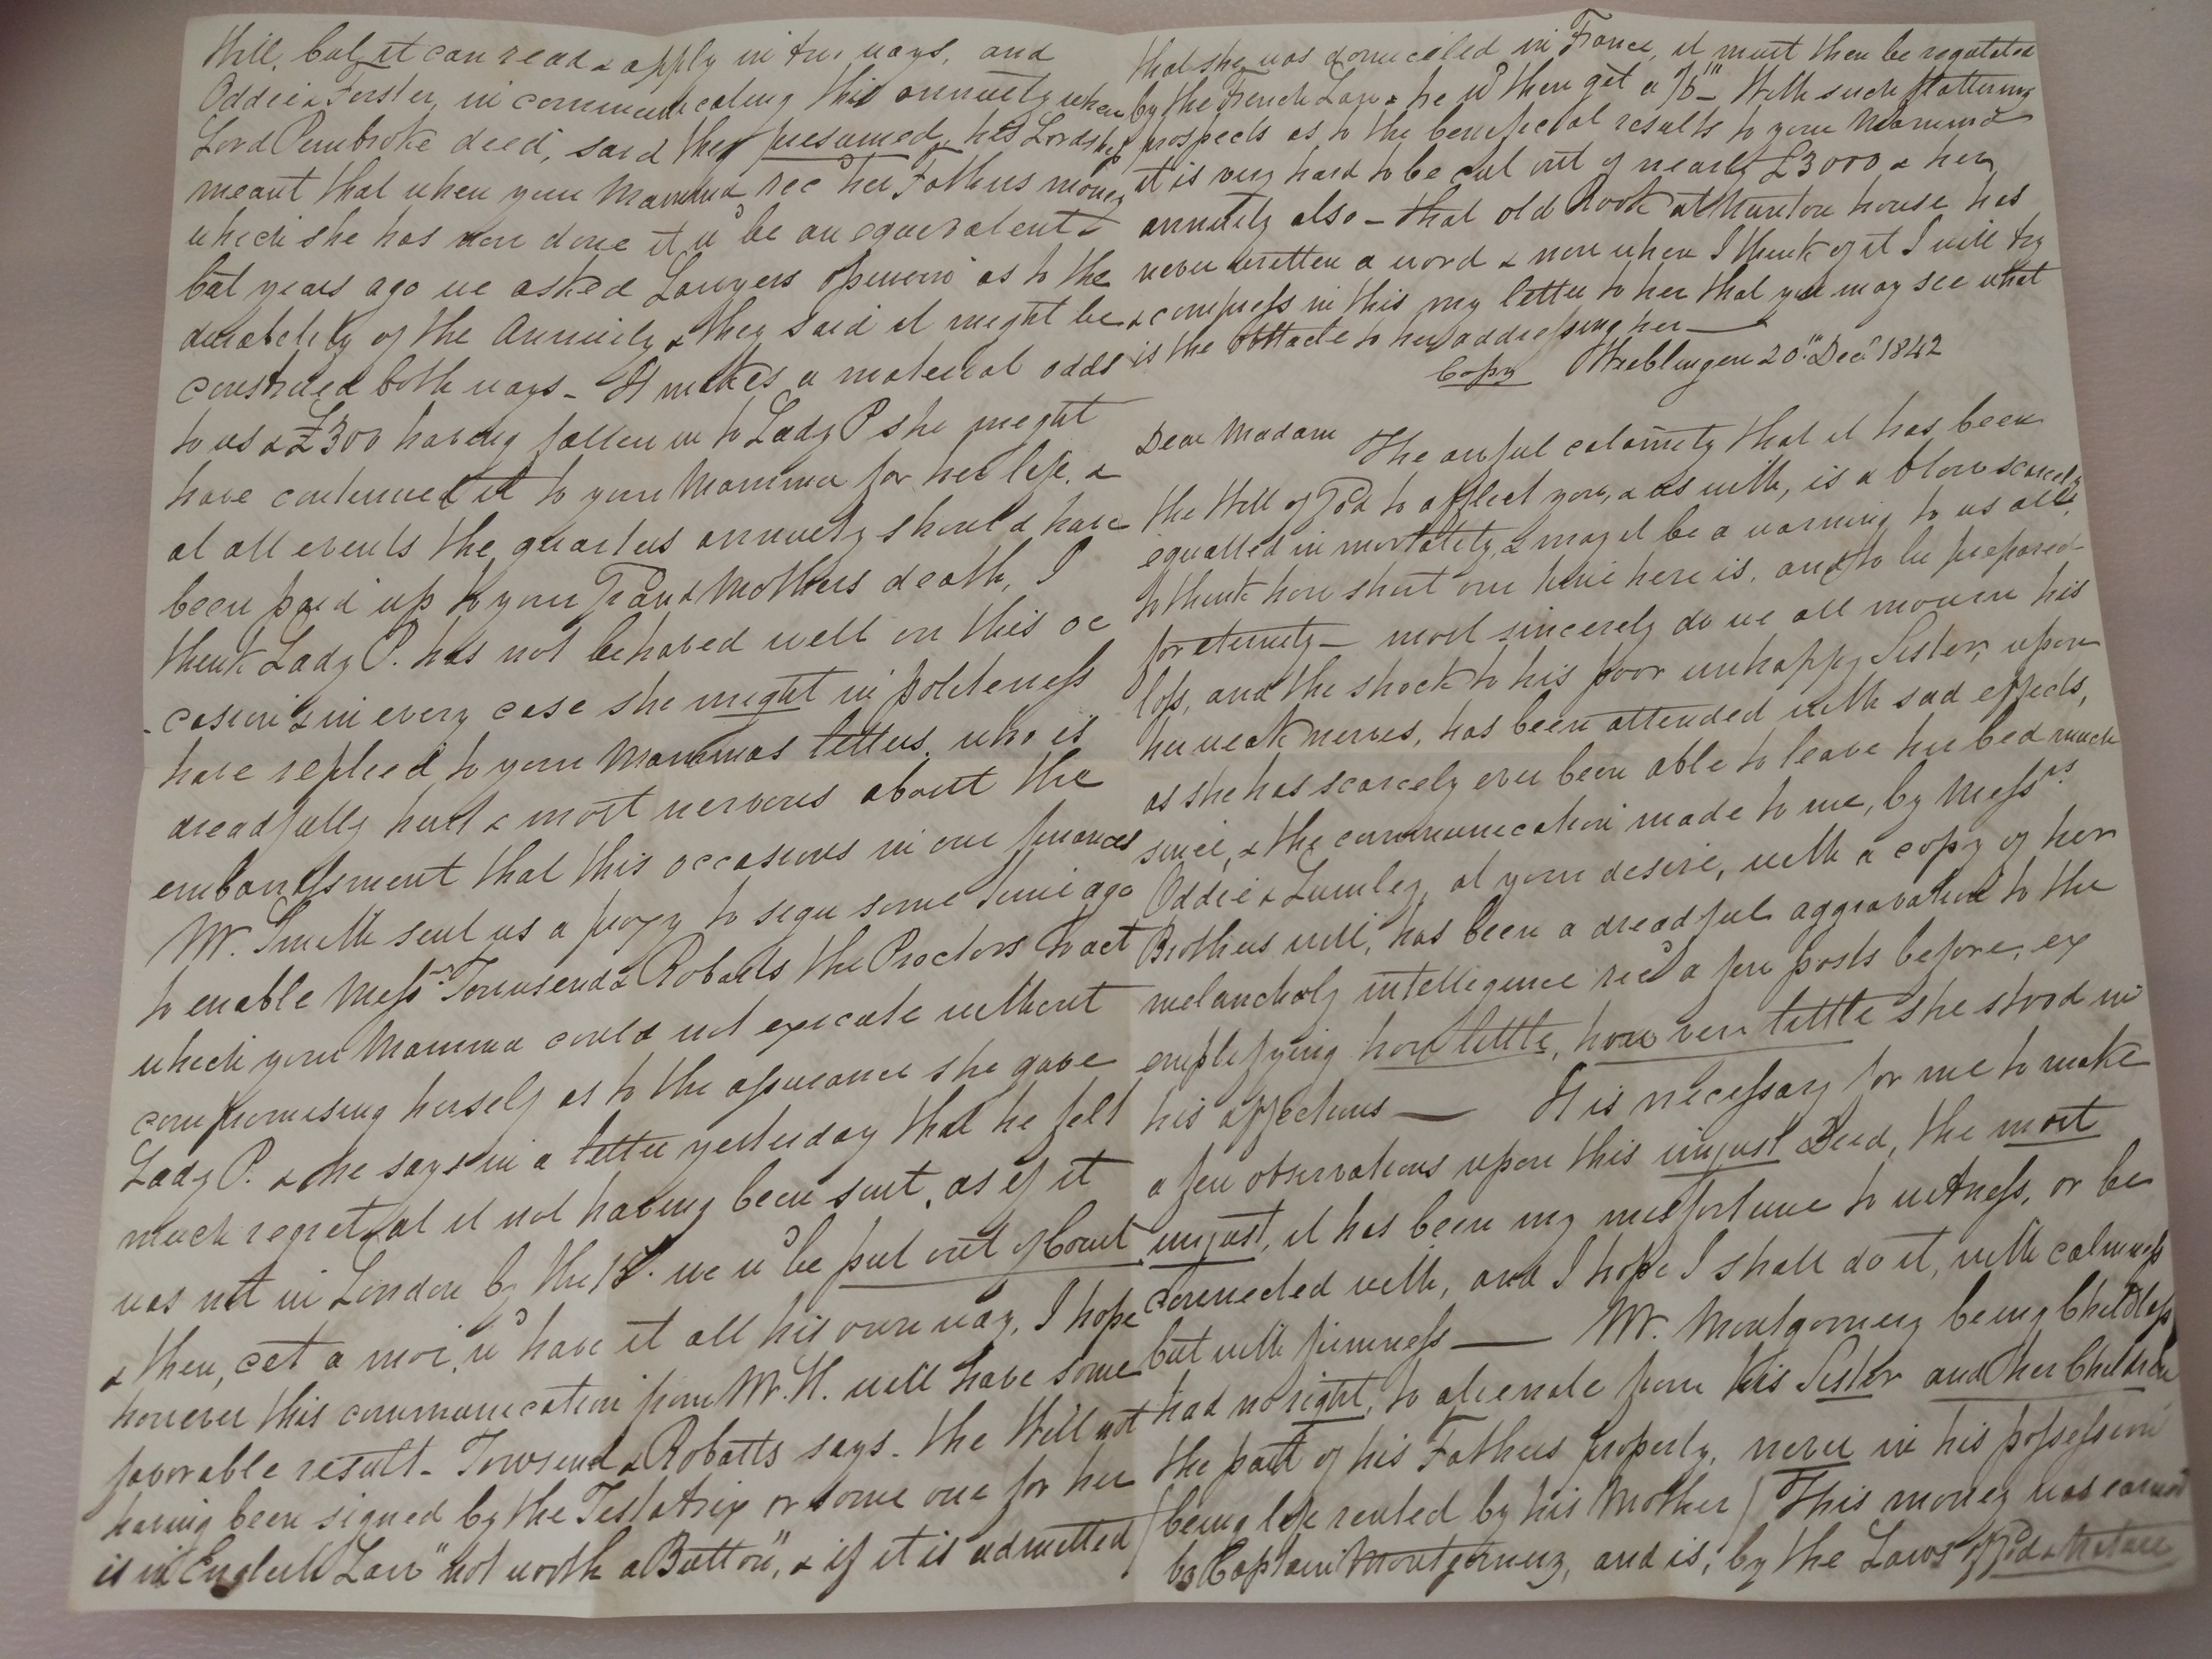 Will, but it can read & apply in two ways, and
Oddie & Forster, in communicating this annuity when
Lord Pembroke died, said they presumed, his Lordship
meant that when your Mamma rec^d her Fathers money
which she has now done it w^d be an equivalent –
but years ago we asked Lawyers opinion as to the
durability of the Annuity & they said it might be
construed both ways – It makes a material odds
to us & £300 having fallen in to Lady P she might
have continued it to your Mamma for her life, &
at all events the quarters annuity should have
been paid up to your Grand Mothers death, I
think Lady P. has not behaved well on this oc
-casion & in every case she might in politeness
have replied to your Mammas letters, who is
dreadfully hurt & most nervous about the
embarrassment that this occasions in our finances
Mr. Smith sent us a proxy to sign some time ago
to enable Mess^rs Townsend & Robarts the Proctors to act
which your Mamma could not execute without
compromising herself as to the assurance she gave
Lady P. & he says in a letter yesterday that he felt
much regret at it not having been sent, as if it
was not in London by the 15^t. we w^d be put out of Court
& then, cet a moi, w^d have it all his own way, I hope
however this communication from Mr. H. will have some
favorable result – Townsend & Robarts says – the Will not
having been signed by the Testatrix or some one for her
is in English Law "not worth a Button", & if it is admitted
that she was domiciled in France, it must then be regulated
by the French Law & he w^d then get a /6^th – With such flattering
prospects as to the beneficial results to your Mamma
it is very hard to be cut out of nearly £3000 & her
annuity also – that old Rook at Nunton house has
never written a word & now when I think of it I will try
& compress in this my letter to her that you may see what
is the obstacle to her addressing her —
Copy Weeblingen 20^th Dec^r 1842
Dear Madam
The awful calamity that it has been
the Will of God to afflict you, & us with, is a blow scarcely
equalled in mortality, & may it be a warning to us all,
to think how short our time here is, and to be prepared
for eternity – most sincerely do we all mourn his
loss, and the shock to his poor unhappy Sister, upon
her weak nerves, has been attended with sad effects,
as she has scarcely ever been able to leave her bed much
since, & the communication made to me, by Mess^rs
Oddie & Lumley, at your desire, with a copy of her
Brothers will, has been a dreadful aggravation to the
melancholy intelligence rec^d a few posts before, ex
emplifying how little, how very little she stood in
his affections — It is necessary for me to make
a few observations upon this unjust Deed, the most
unjust, it has been my misfortune to witness, or be
connected with, and I hope I shall do it, with calmness
but with firmness — Mr. Montgomery being Childless
had no right, to alienate from his Sister and her Children
the part of his Fathers property, never in his possession
(being life rented by his Mother) This money was earned
by Captain Montgomery, and is, by the Laws of God & Nature